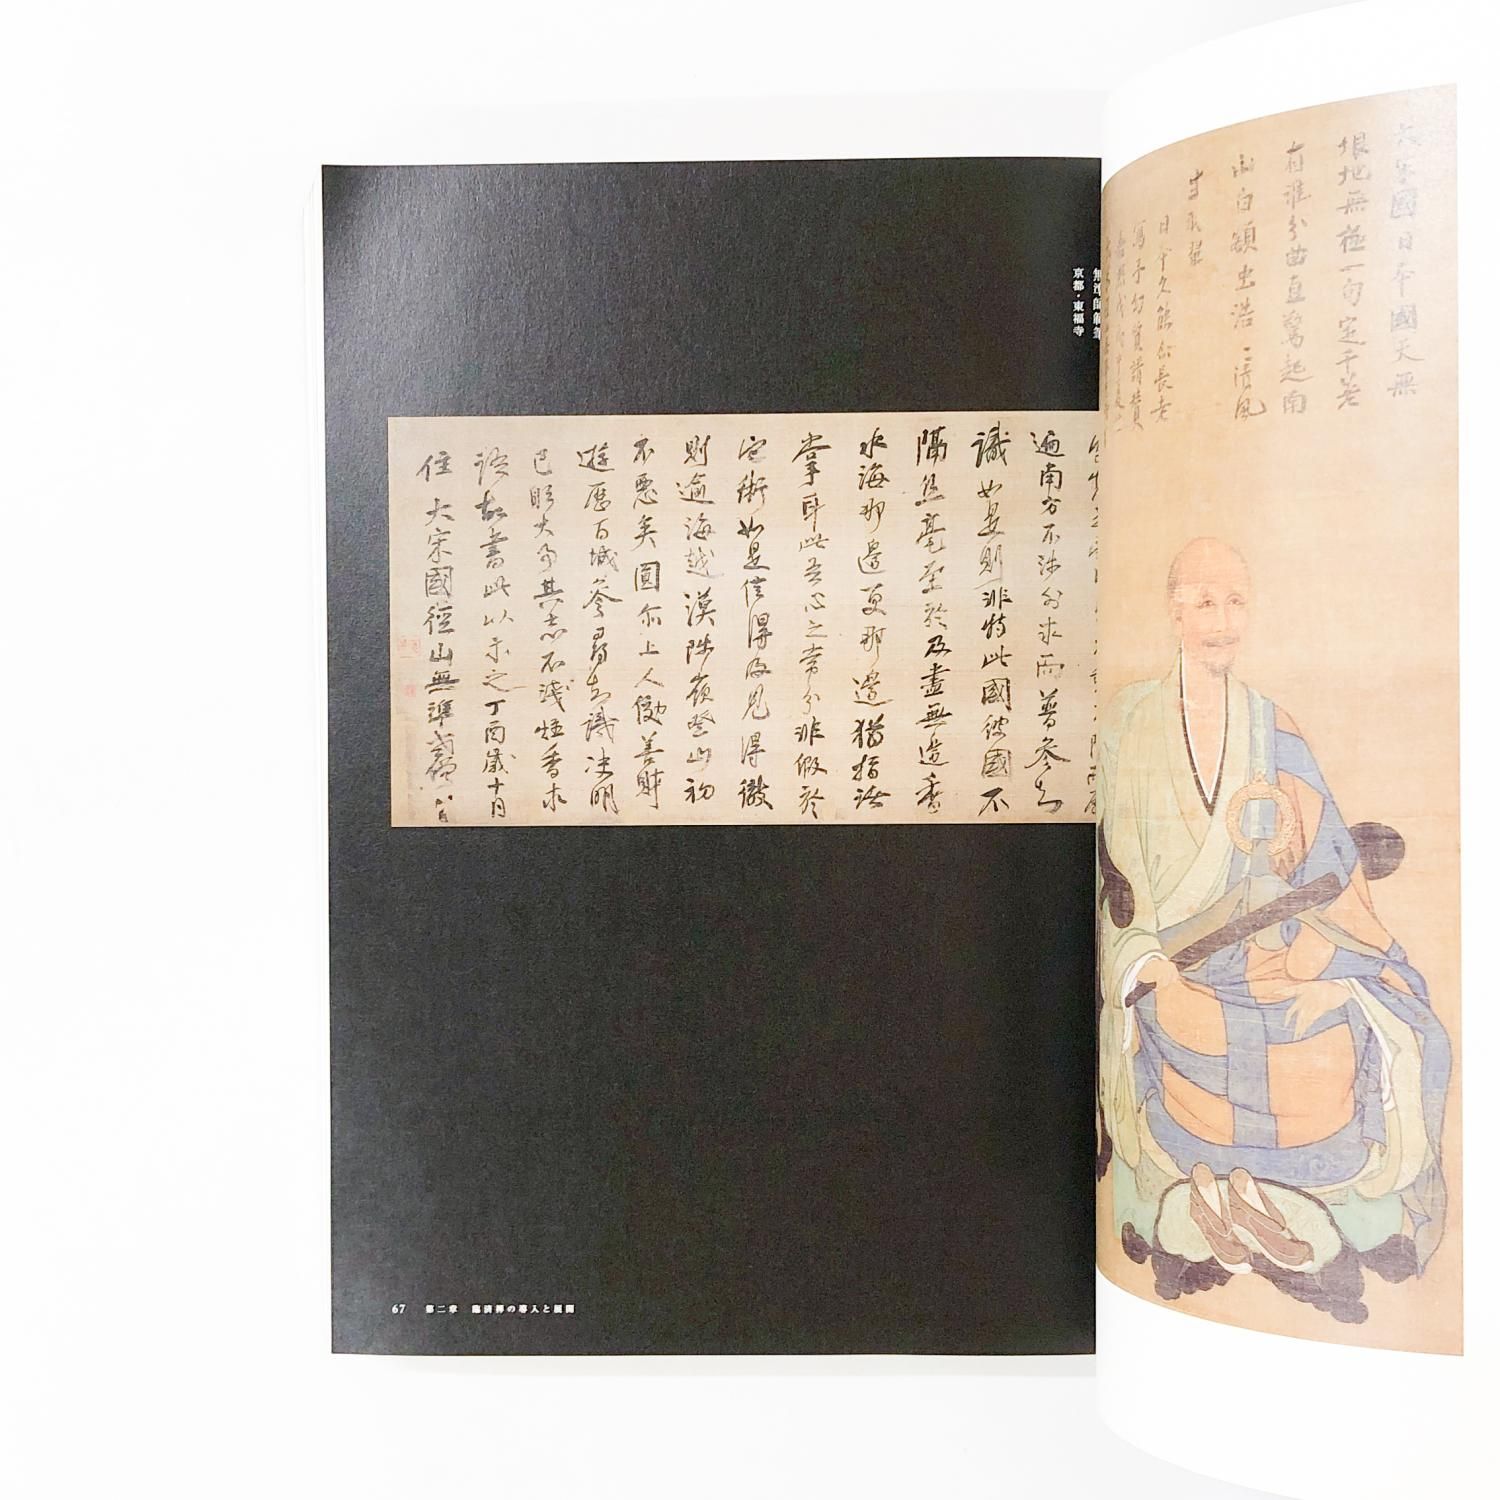 大宋國日本國天無
垠地無極一句定千差
有誰分曲直驚起南
山白額虫浩〻清風
生羽翼
日本久能尓長老
寫予幻質請賛
無準師範筆
京都・東福寺
遍南方不渉外求而普参知
識如是則非特此國彼國不
隔絲毫至於及盡無邊香
水海那邊更那邊猶指諸
掌耳此吾心之常分非假於
它術如是信得及見得徹
則逾海越漠陟嶺登山初
不惡矣圓尓上人儌善財
遊歴百城参尋知識决明
己躬大事其志不淺炷香求
語故書此以示之丁酉歳十月
住大宋國徑山無準
67 第二章 臨済禅の導入と展開